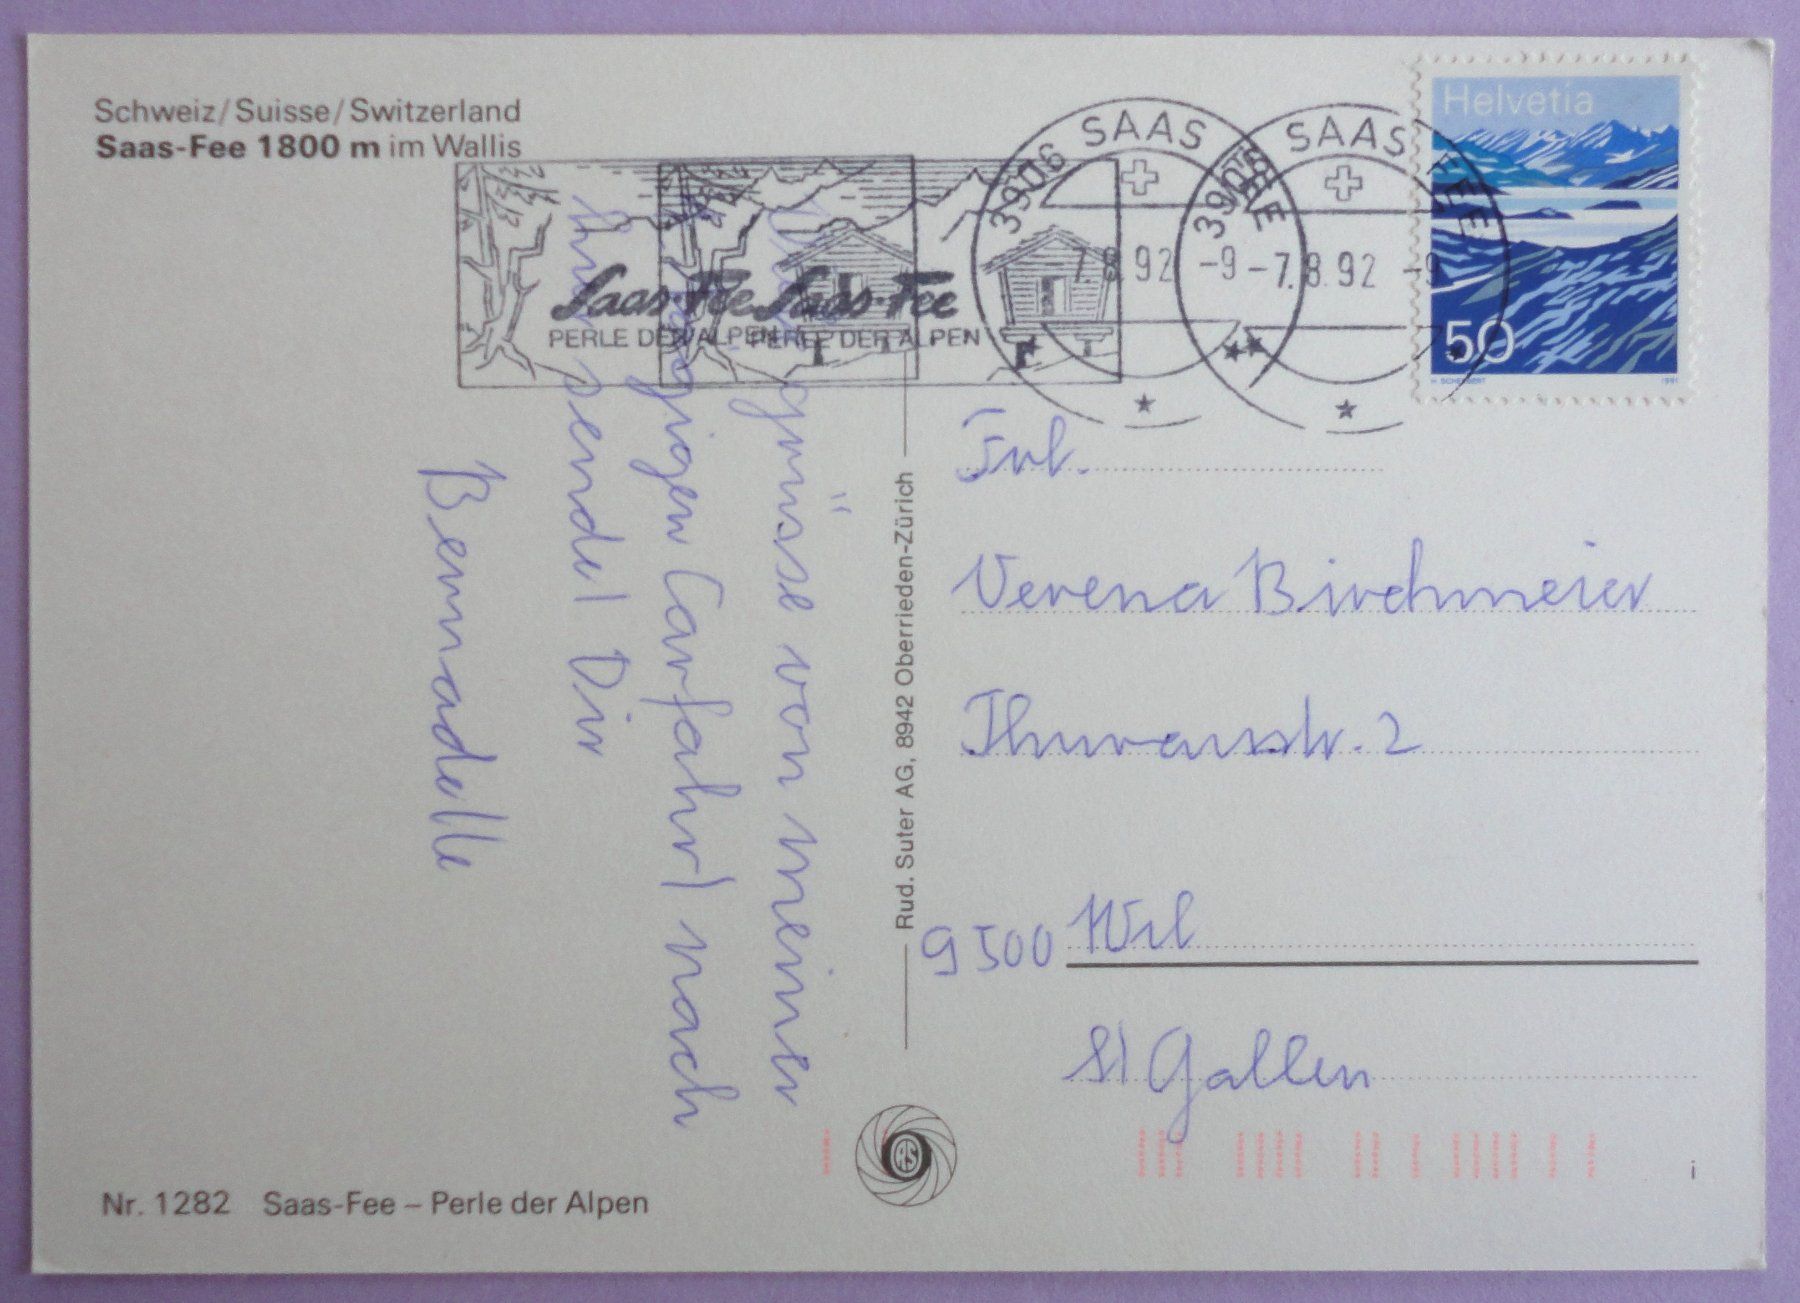 Schweiz/Suisse/Switzerland
Saas-Fee 1800 m im Wallis
Saas-Fee
PERLE DER ALPEN
Saas-Fee
PERLE DER ALPEN
3906 SAAS-FEE
7.8.92 -9
3906 SAAS-FEE
-7.8.92 -9
Helvetia
50
grüsse von meiner
Carfahrt nach
hier sendet Dir
Bernadette
Rud. Suter AG, 8942 Oberrieden-Zürich
Frl.
Verena Birchmeier
Thuraustr. 2
9500 Wil
St Gallen
RS
i
Nr. 1282 Saas-Fee – Perle der Alpen